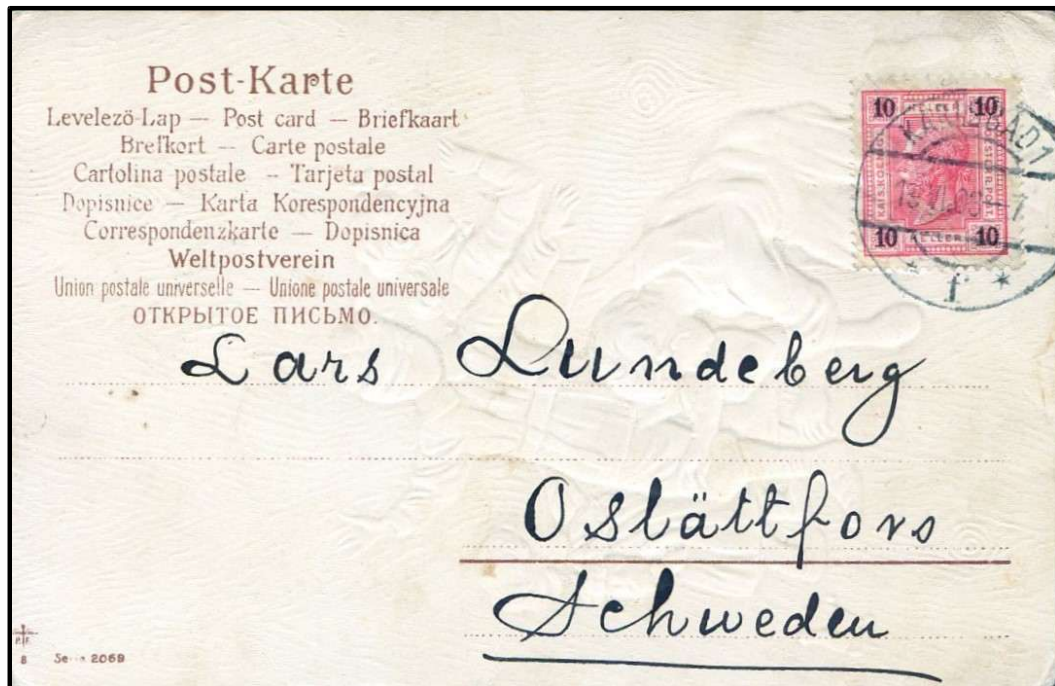 Post-Karte
Levelező-Lap — Post card — Briefkaart
Brefkort — Carte postale
Cartolina postale — Tarjeta postal
Dopisnice — Karta Korespondencyjna
Correspondenzkarte — Dopisnica
Weltpostverein
Union postale universelle — Unione postale universale
ОТКРЫТОЕ ПИСЬМО.
10 HELLER 10
10 HELLER 10
KARLSBAD 1
Lars Lundeberg
Oslättfors
Schweden
P.F.
8 Serie 2069